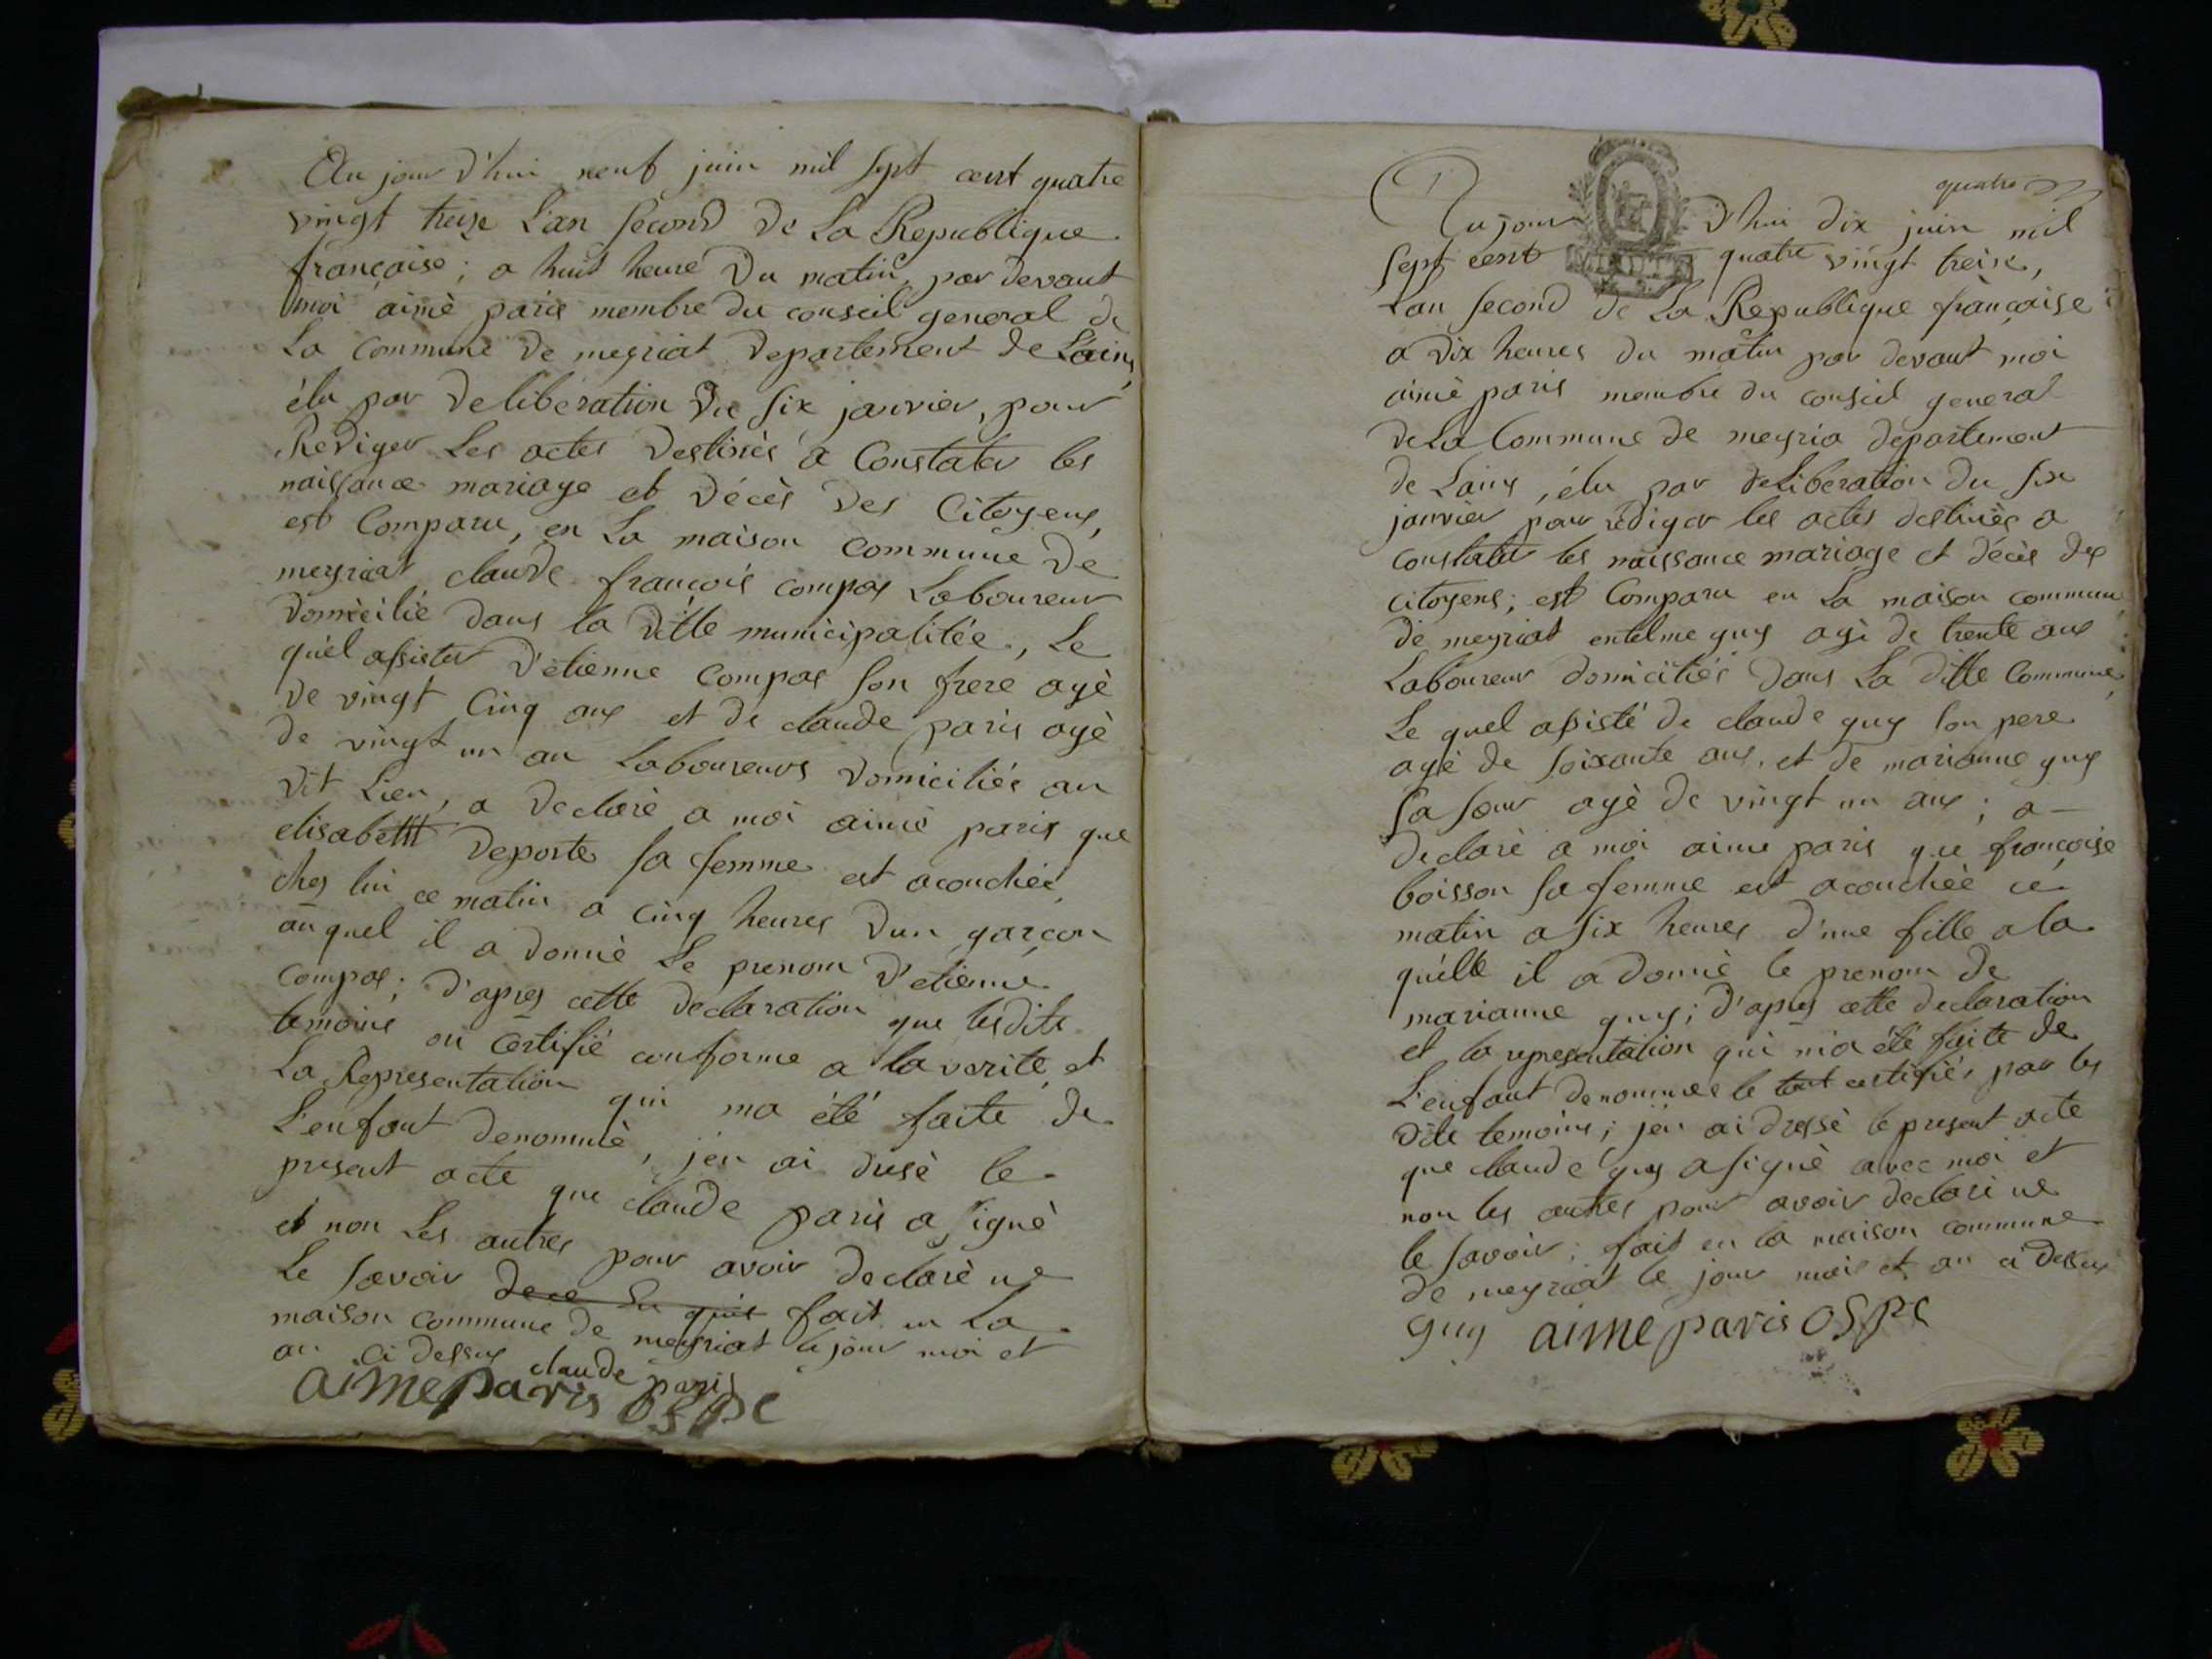 Au jour d'hui neuf juin mil sept cent quatre
vingt treize L'an second de La Republique
française; a huit heure Du matin, par devant
moi aimé paris membre du conseil general de
La commune de meyriat departement de L'ain,
élu par deliberation du six janvier, pour
Rediger Les actes destinés a Constater les
naissance mariage et décès des Citoyens,
est Comparu, en La maison commune de
meyriat claude françois compas Laboureur
domicilié dans la ditte municipalitée, Le
quel assister d'etienne compas son frere agé
de vingt Cinq ans et de claude paris agé
de vingt un an Laboureurs domiciliés au
dit Lieu, a declaré a moi aimé paris que
elisabett deporte sa femme est acouchée
chez lui ce matin a cinq heures d'un garçon
auquel il a donné Le prenom d'etienne
compas; d'apres cette declaration que lesdits
temoins on certifié conforme a la verité, et
La Representation qui ma été faite de
L'enfant denommé, jen ai dressé le
present acte que claude paris a signé
et non Les autres pour avoir declaré ne
Le savoir de ce fait en La
maison commune de meyriat le jour moi et
an ci dessus
claude paris
aime paris OSPC
quatre
Aujour d'hui dix juin mil
sept cent quatre vingt treize,
L'an second de La Republique française
a dix heures du matin par devant moi
aimé paris membre du conseil general
de La Commune de meyria departement
de Lains, élu par deliberation du six
janvier pour rédiger les actes destinés a
constater les naissance mariage et décès des
citoyens; est Comparu en La maison commune
de meyriat entelme guy agé de trente ans
Laboureur domiciliés dans La ditte Commune,
Le quel assisté de claude guy son pere
agé de soixante ans, et de marianne guy
sa sœur agé de vingt un ans; a
declaré a moi aimé paris que françoise
boisson sa femme est acouchée ce
matin a six heures d'une fille a la
quelle il a donné le prenom de
marianne guy; d'apres cette declaration
et la representation qui m'a été faite de
L'enfant denommée le tout certifiés par les
dits temoins; jen ai dressé le present acte
que claude guy a signé avec moi et
non les autres pour avoir declaré ne
le savoir; fait en la maison commune
de meyriat le jour mois et an ci dessus
guy aime paris OSPC